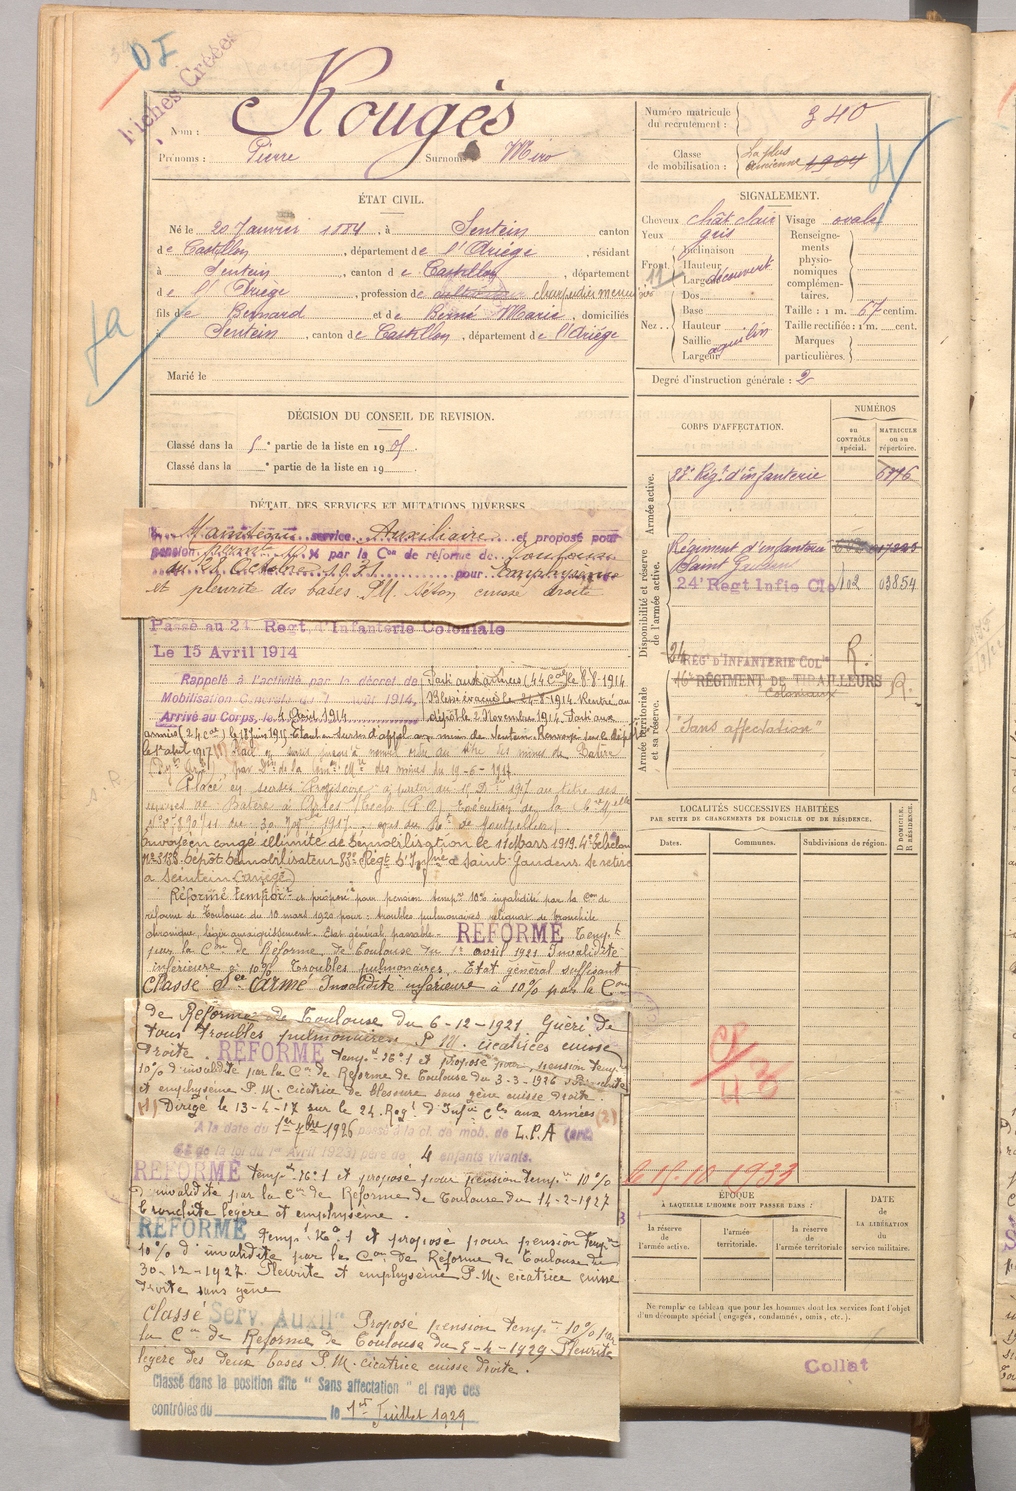 DI
Fiches Créées
Nom : Rougés
Prénoms : Pierre Surnoms : Miro
Numéro matricule du recrutement : 340
Classe de mobilisation : La plus ancienne 1904
ÉTAT CIVIL.
Né le 20 Janvier 1884, à Sentein canton
de Castillon, département de l'Ariège, résidant
à Sentein, canton de Castillon, département
de l'Ariège, profession de charpentier menuisier
fils de Bernard et de Berné Marie, domiciliés
à Sentein, canton de Castillon, département de l'Ariège
Marié le
SIGNALEMENT.
Cheveux chât clair Visage ovale
Yeux gris
Front Inclinaison Hauteur Largeur découvert
Nez Dos Base Hauteur Saillie Largeur aquilin
Renseignements physionomiques complémentaires.
Taille : 1 m. 67 centim.
Taille rectifiée : 1 m. cent.
Marques particulières.
Degré d'instruction générale : 2
DÉCISION DU CONSEIL DE REVISION.
Classé dans la 5e partie de la liste en 1905.
Classé dans la e partie de la liste en 19
DÉTAIL DES SERVICES ET MUTATIONS DIVERSES
Maintenu service Auxiliaire et proposé pour
pension par la Con de réforme de Toulouse
du 28 Octobre 1931 pour Emphysème
et pleurite des bases P.M. Séton cuisse droite
Passé au 24 Regt d'Infanterie Coloniale
Le 15 Avril 1914
Rappelé à l'activité par le décret de
Mobilisation Générale du 1 août 1914,
Arrivé au Corps, le 4 Août 1914
Parti aux armées (44 Cal) le 8-8-1914
Blessé évacué le 24-8-1914. Rentré au
dépôt le 2 Novembre 1914. Parti aux
armées (24 Cal) le 18 juin 1915.
le 1er avril 1917
Placé en sursis Provisoire à partir du 15 Dbre 1917 au titre des
Envoyé en congé illimité de démobilisation le 11 Mars 1919. 4e Echelon
dépôt démobilisateur 83e Régt d'Infrie de Saint Gaudens. Se retire
à Sentein (Ariège)
Réformé temporre et proposé pour pension tempre 10% invalidité par la Con de
réforme de Toulouse du 10 mars 1920 pour : troubles pulmonaires reliquat de bronchite
chronique, léger amaigrissement. Etat général passable. REFORMÉ Temp.t
par la Con de Réforme de Toulouse du 1er avril 1921 Invalidité
inférieure à 10% Troubles pulmonaires. Etat général suffisant
Classé Sce Armé Invalidité inférieure à 10% par la Con
de Réforme de Toulouse du 6-12-1921. Guéri de
tous troubles pulmonaires P.M. cicatrices cuisse
droite. REFORMÉ temp.t No 1 et proposé pour pension temp.
10% d'invalidité par la Con de Réforme de Toulouse du 3-3-1926
et emphysème P.M. cicatrice de blessure sans gêne cuisse droite.
(1) Dirigé le 13-4-17 sur le 24 Regt d'Infie Cle aux armées (2)
A la date du 1er 7bre 1926 passé à la cl. de mob. de L.P.A (art.
de la loi du 1er Avril 1923) père de 4 enfants vivants.
REFORMÉ temp.t No 1 et proposé pour pension temp.re 10%
d'invalidité par la Con de Réforme de Toulouse du 14-2-1927
bronchite légère et emphysème.
REFORMÉ temp.t No 1 et proposé pour pension temp.re
10% d'invalidité par la Con de Réforme de Toulouse du
30-12-1927. Pleurite et emphysème P.M. cicatrice cuisse
droite sans gêne
Classé Serv. Auxilre Proposé pension temp.re 10% par
la Con de Réforme de Toulouse du 5-4-1929 Pleurite
légère des deux bases P.M. cicatrice cuisse droite.
Classé dans la position dite "Sans affectation" et rayé des
contrôles du le 1er Juillet 1929
CORPS D'AFFECTATION.
NUMÉROS
au CONTRÔLE spécial.
MATRICULE ou au répertoire.
Armée active.
83e Régt d'infanterie 6776
Disponibilité et réserve de l'armée active.
Régiment d'infanterie
Saint Gaudens
24e Regt Infie Cle 102 03854
Armée territoriale et sa réserve.
24 REGt D'INFANTERIE COLle R.
16e RÉGIMENT DE TIRAILLEURS R.
Coloniaux
"Sans affectation"
LOCALITÉS SUCCESSIVES HABITÉES
PAR SUITE DE CHANGEMENTS DE DOMICILE OU DE RÉSIDENCE.
Dates. Communes. Subdivisions de région.
D DOMICILE. R RÉSIDENCE.
15.10.1933
ÉPOQUE
À LAQUELLE L'HOMME DOIT PASSER DANS :
la réserve de l'armée active.
l'armée territoriale.
la réserve de l'armée territoriale
DATE DE LA LIBÉRATION du service militaire.
Ne remplir ce tableau que pour les hommes dont les services font l'objet
d'un décompte spécial (engagés, condamnés, omis, etc.).
Collat